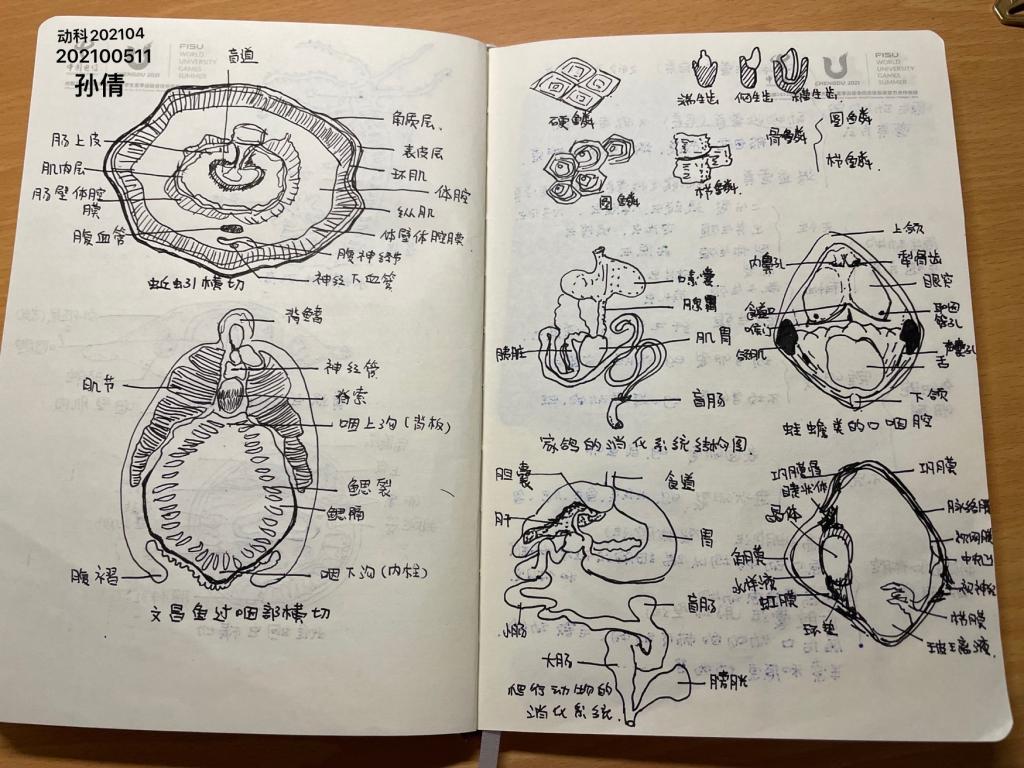 动科202104
202100511
孙倩
FISU
WORLD
UNIVERSITY
GAMES
SUMMER
CHENGDU 2021
盲道
角质层
肠上皮
表皮层
肌肉层
环肌
肠壁体腔
膜
体腔
纵肌
腹血管
体壁体腔膜
腹神经
神经下血管
蚯蚓横切
背鳍
神经管
肌节
脊索
咽上沟(背板)
鳃裂
鳃隔
腹褶
咽下沟(内柱)
文昌鱼过咽部横切
FISU
WORLD
UNIVERSITY
GAMES
SUMMER
CHENGDU 2021
端生齿
侧生齿
槽生齿
硬鳞
骨鳞
圆鳞
栉鳞
圆鳞
栉鳞
上颌
内鼻孔
犁骨齿
眼窝
嗉囊
腺胃
耳咽
管孔
食道口
喉门
肌胃
胰脏
舌
盲肠
下颌
家鸽的消化系统结构图
蛙蟾类的口咽腔
胆囊
食道
肝
胃
盲肠
小肠
大肠
膀胱
爬行动物的
消化系统
巩膜
晶体
脉络膜
角膜
水样液
虹膜
玻璃液